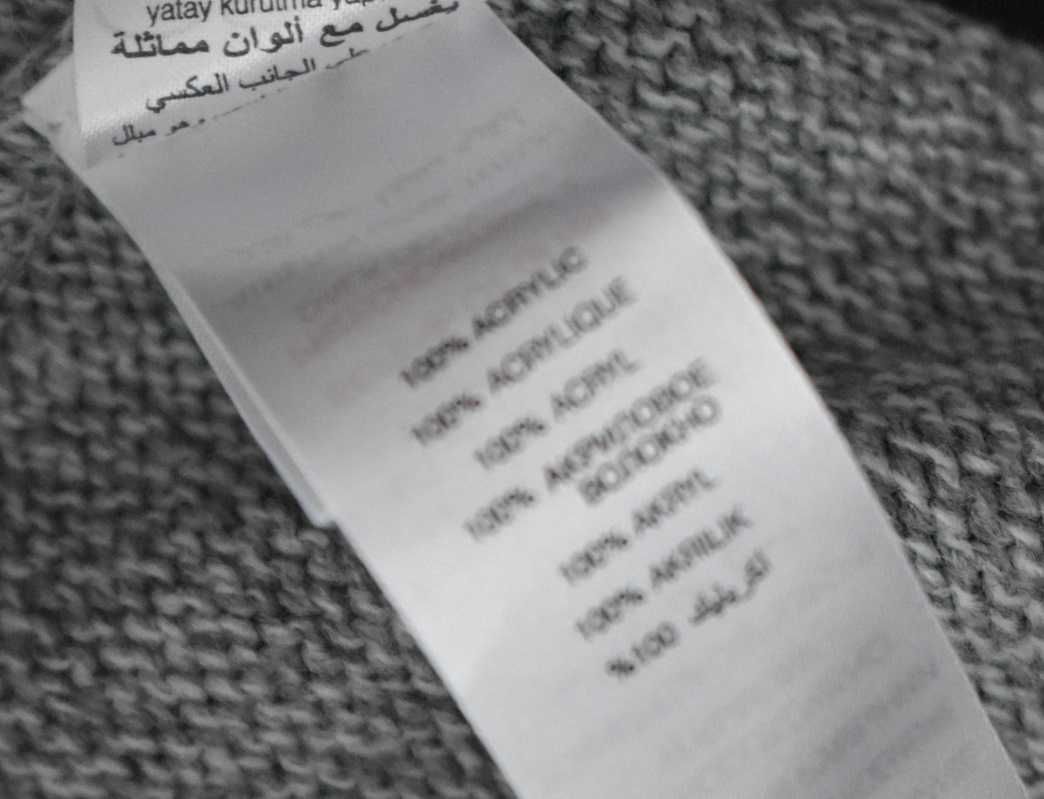 yatay kurutma
يغسل مع ألوان مماثلة
الجانب العكسي
وهو مبلل
100% ACRYLIC
100% ACRYLIQUE
100% ACRYL
100% АКРИЛОВОЕ
ВОЛОКНО
100% AKRYL
100% AKRILIK
%100 اكريليك